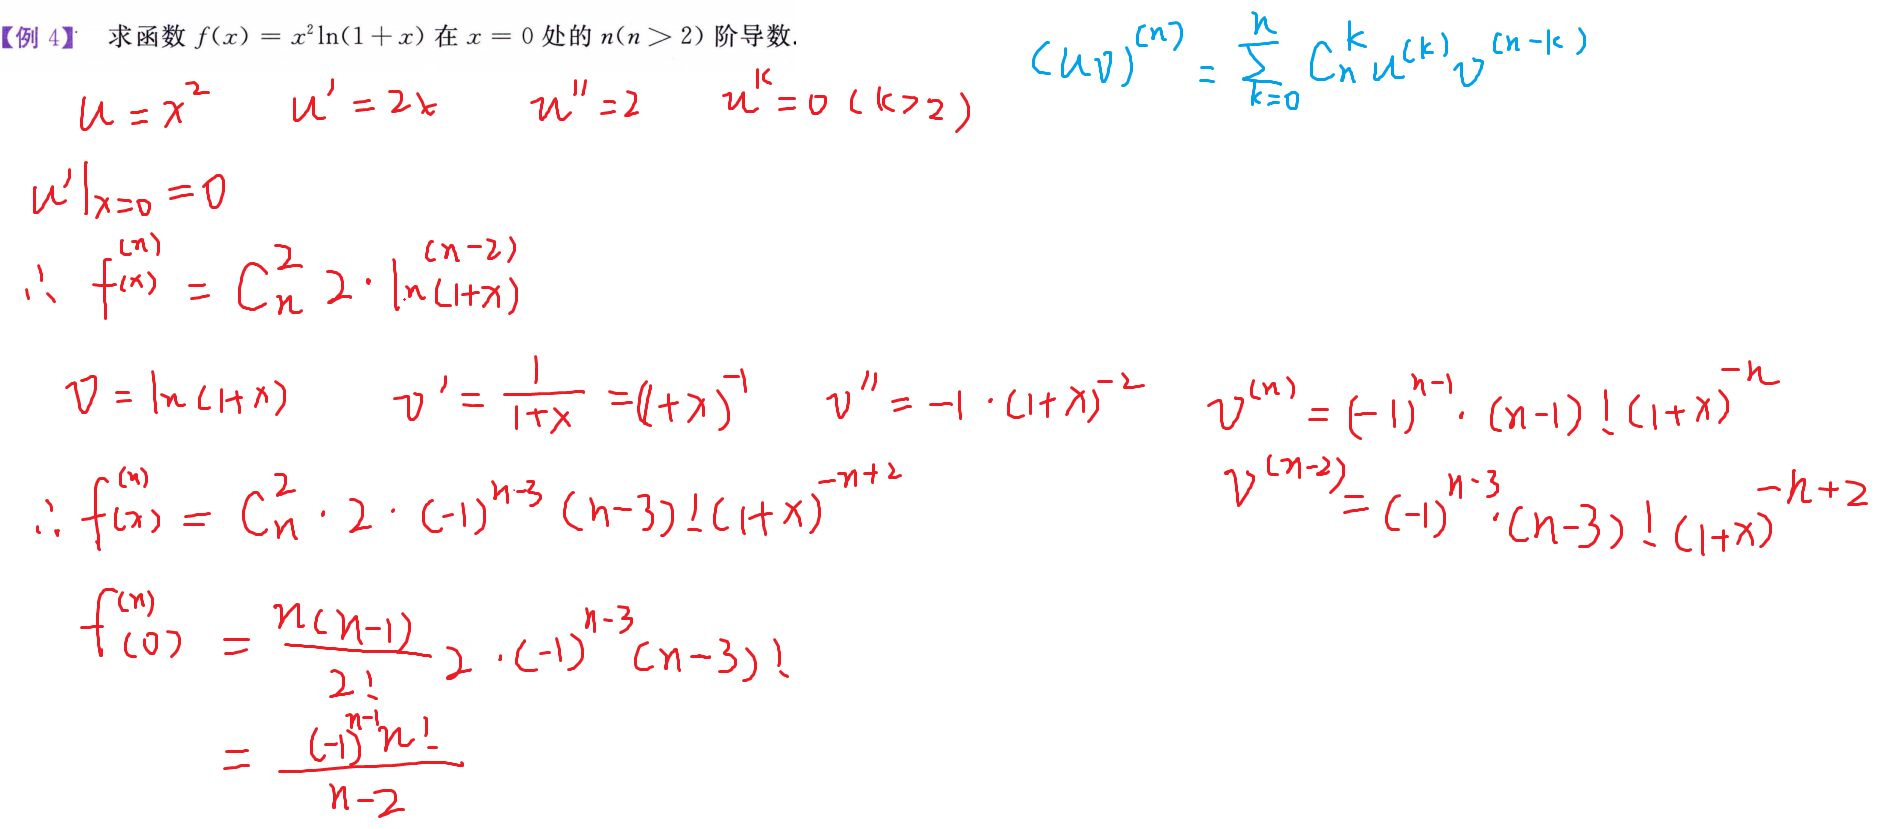 【例 4】 求函数 f(x) = x²ln(1+x) 在 x = 0 处的 n(n > 2) 阶导数.
(uv)^(n) = ∑_{k=0}^{n} C_n^k u^(k) v^(n-k)
u = x² u' = 2x u'' = 2 u^k = 0 (k>2)
u'|_{x=0} = 0
∴ f^(n)(x) = C_n^2 2 · ln^(n-2)(1+x)
v = ln(1+x) v' = \frac{1}{1+x} = (1+x)^{-1} v'' = -1 · (1+x)^{-2} v^(n) = (-1)^{n-1} · (n-1)! (1+x)^{-n}
v^(n-2) = (-1)^{n-3} · (n-3)! (1+x)^{-n+2}
∴ f^(n)(x) = C_n^2 · 2 · (-1)^{n-3} (n-3)! (1+x)^{-n+2}
f^(n)(0) = \frac{n(n-1)}{2!} 2 · (-1)^{n-3} (n-3)!
= \frac{(-1)^{n-1} n!}{n-2}